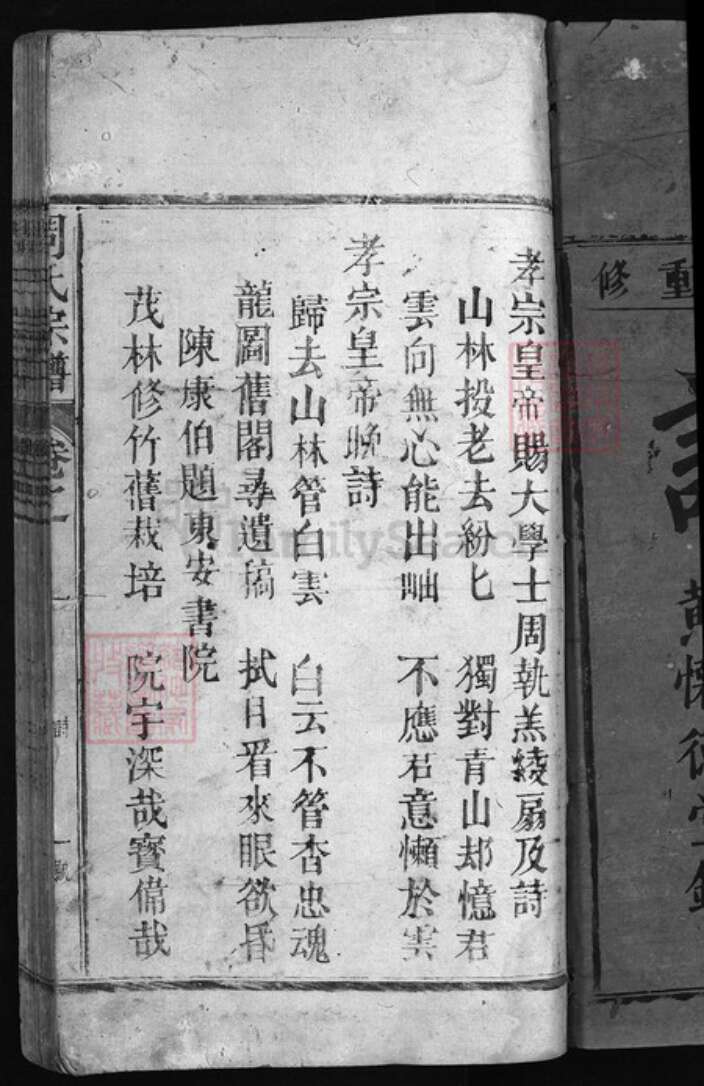 重修
譜
黃懷德堂
孝宗皇帝賜大學士周執羔綾扇及詩
山林投老去紛匕　獨對青山却憶君
雲向無心能出岫　不應君意懶於雲
孝宗皇帝晚詩
歸去山林管白雲　白云不管杳忠魂
龍圖舊閣尋遺稿　拭目看來眼欲昏
陳康伯題東安書院
茂林修竹舊栽培　院宇深哉寶偹哉
周氏宗譜　卷之一
FamilySearch